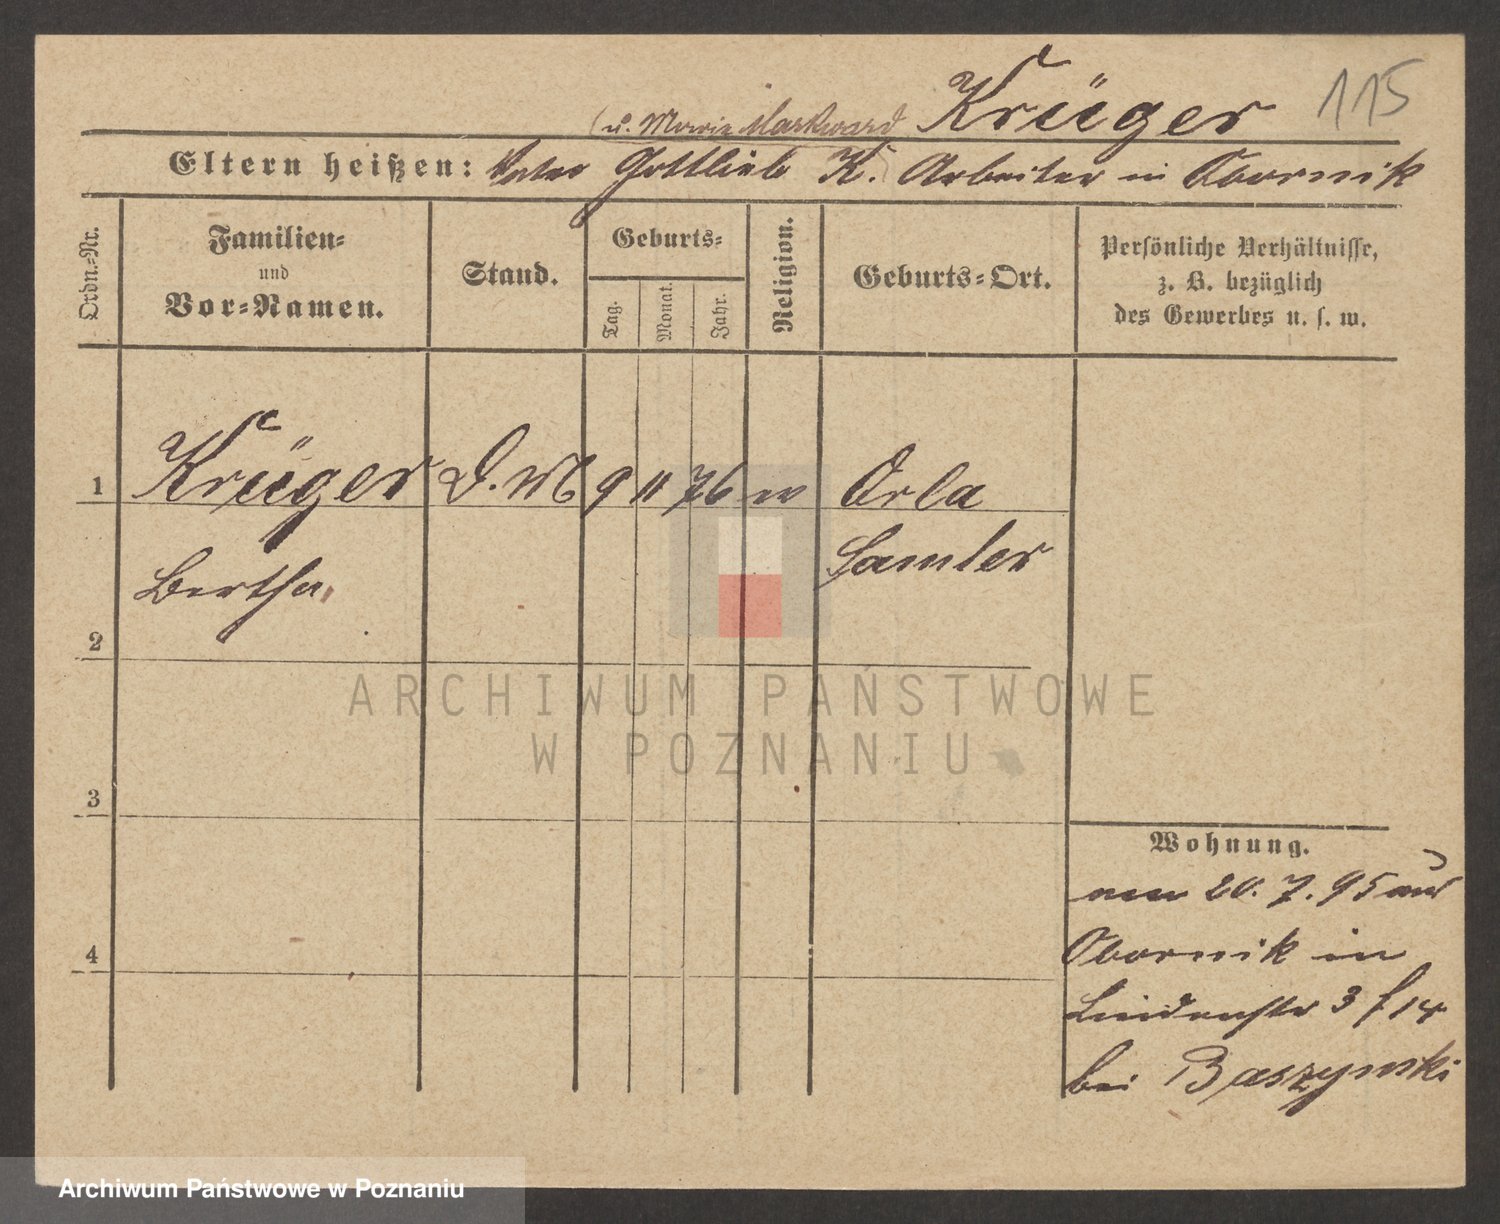 115
Krüger
(u. Marie Markward
Eltern heißen: Vater Gottlieb K. Arbeiter in Obornik
Ordn.-Nr.
Familien-
und
Vor-Namen.
Stand.
Geburts-
Tag.
Monat.
Jahr.
Religion.
Geburts-Ort.
Persönliche Verhältnisse,
z. B. bezüglich
des Gewerbes u. s. w.
1 Krüger D. M 9 11 76 w Orla
Bertha Samter
2
ARCHIWUM PAŃSTWOWE
W POZNANIU
3
Wohnung.
20. 7. 95 aus
4
Obornik in
Lindenstr 3 f 14
bei Baszynski
Archiwum Państwowe w Poznaniu